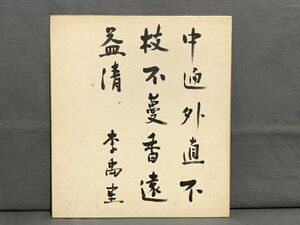 中通外直不
枝不蔓香遠
益清 李禹圭